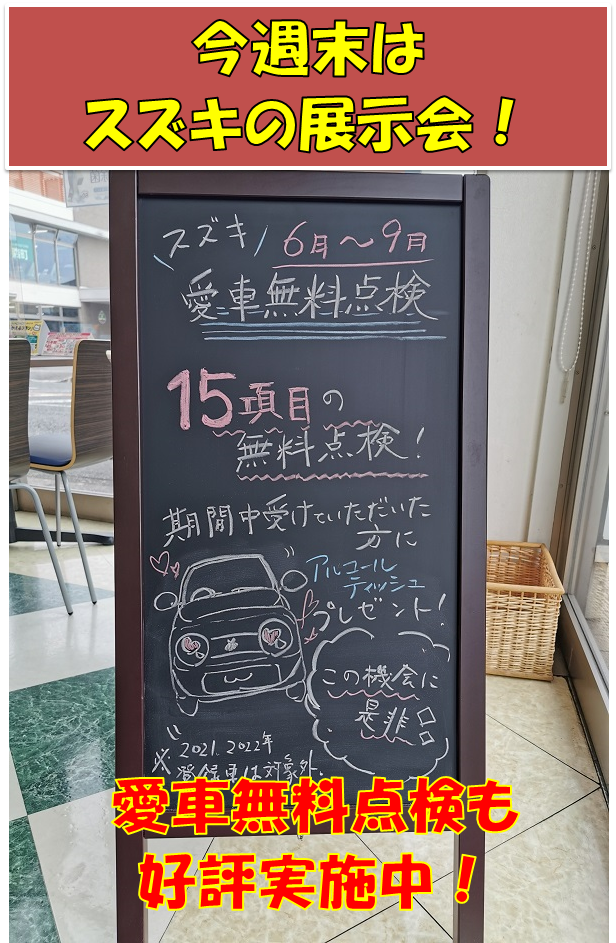 今週末は
スズキの展示会！
スズキ 6月～9月
愛車無料点検
15項目の
無料点検！
期間中受けていただいた
方に
アルコール
ティッシュ
プレゼント！
この機会に
是非
※2021.2022年
登録車は対象外。
愛車無料点検も
好評実施中！